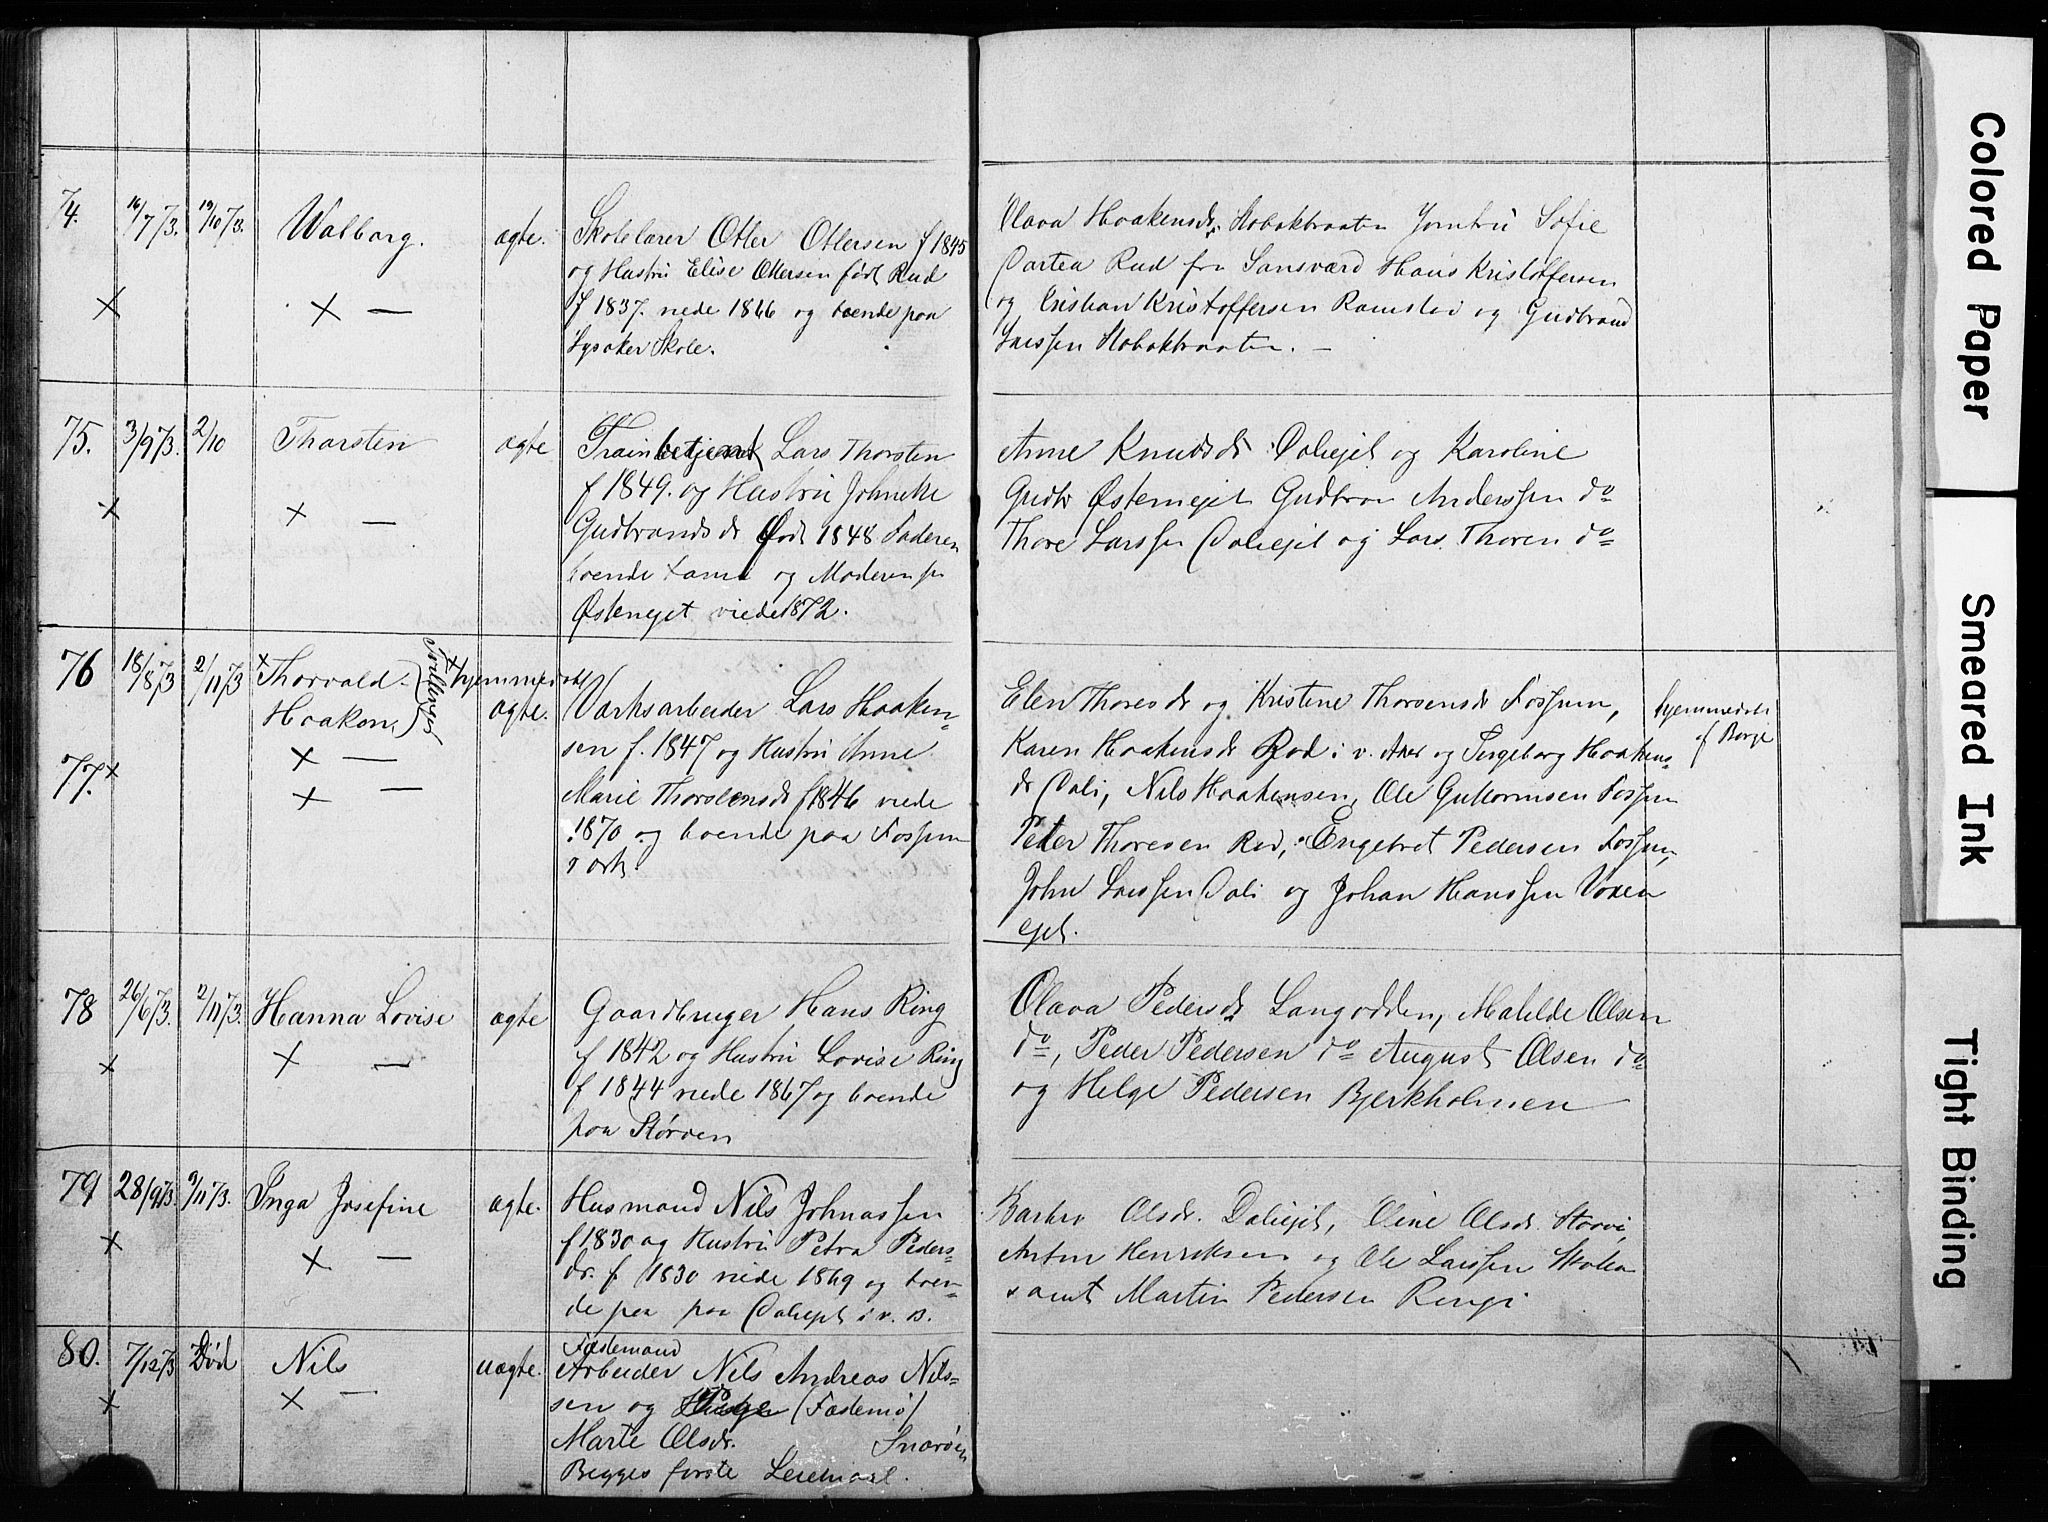 74. 16/7 73. 19/10 73. Walborg. ægte. Skolelærer Otter Ottersen f 1845
og Hustru Elise Ottersen født Rud
f 1837. viede 1866 og boende paa
Lysaker Skole.
Olava Haakensdr. Jomfru Sofie
Rud fra Hans Kristoffersen
og Kristian Kristoffersen Ramstad og Gudbrand
Larssen
75. 3/9 73. 2/10 Thorsten ægte Trainbetjent Lars Thorsten
f 1849. og Hustru
Gudbrandsdr Født 1848 Faderen
boende og Moderen
viede 1872.
Anne Knudsdr og Karoline
Gudbr Anderssen do
Thore Larssen og Lars Thoren do
76 18/8 73 2/11 73 Thorvald Tvillinger hjemmedøbt
Haakon, ægte. Værksarbeider Lars Haaken-
77. sen f. 1847 og Hustru Anne
Marie Thorsensdr f 1846 viede
1870 og boende paa Fossum
Værk
Elen Thoresdr og Kristine Thorsensdr Fossum,
Karen Haakensdr Rod i v. Aker og Ingeborg Haakens-
dr Dali, Nils Haakensen, Ole Guttormsen Fossum
Peter Thoresen Rud, Engebret Pedersen Fossum,
John Larssen Dali og Johan Hanssen Voxen
ejet.
hjemmedøbt
af Borge
78 26/6 73. 2/11 73. Hanna Lovise ægte Gaardbruger Hans Ring
f 1842 og Hustru Lovise Ring
f 1844 viede 1867 og boende
paa Størøen
Olava Pedersdr Langodden, Mathilde Olsen
do, Peder Pedersen do August Olsen do
og Helge Pedersen Bjerkholmen
79 28/9 73. 9/11 73. Inga Josefine ægte. Husmand Nils Johnassen
f 1830 og Hustru Petra Peders-
dr. f 1830 viede 1869 og boen-
de paa paa Daliejet i v. B.
Barbro Olsdr. Daliejet, Eline Olsdr.
Anton Henriksen og Ole Larssen
samt Martin Pedersen Ringi
80. 7/12 73 Død Nils uægte. Fæstemand
Arbeider Nils Andreas Nils-
sen og (Fæstemø)
Marte Olsdr. Snarøen
Begges første Leiermaal.
Colored Paper
Smeared Ink
Tight Binding